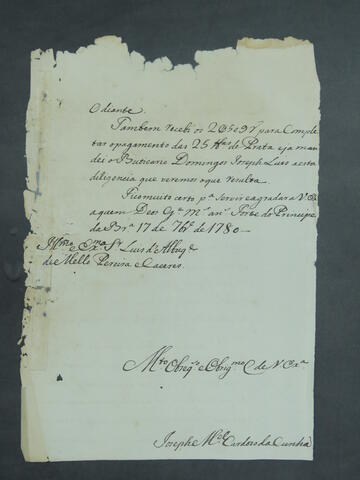 Odiante.
Tambem recebi os 205097 para Comple
tar opagamento das 25 8as de Prata eja man
dei o Buticario Domingos Joseph Luis aesta
diligencia que veremos oque rezulta.
Fico muito certo pa Servir eagradar a V. Exa
aquem Deos Gde ms ans Forte do Principe
da Bra 17 de 7bro de 1780
Illmo e Exmo Sr Luis d'Albuqe
de Mello Pereira e Caceres.
Mto Obrigo e Obrigmo C de V Exa
Joseph Mel Cardoso da Cunha